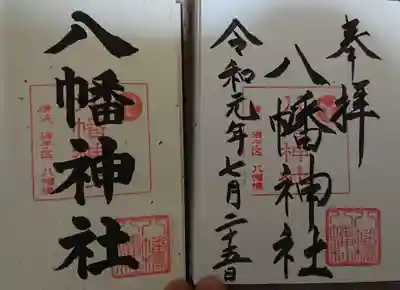 八幡神社
奉拝
八幡神社
令和元年七月二十五日